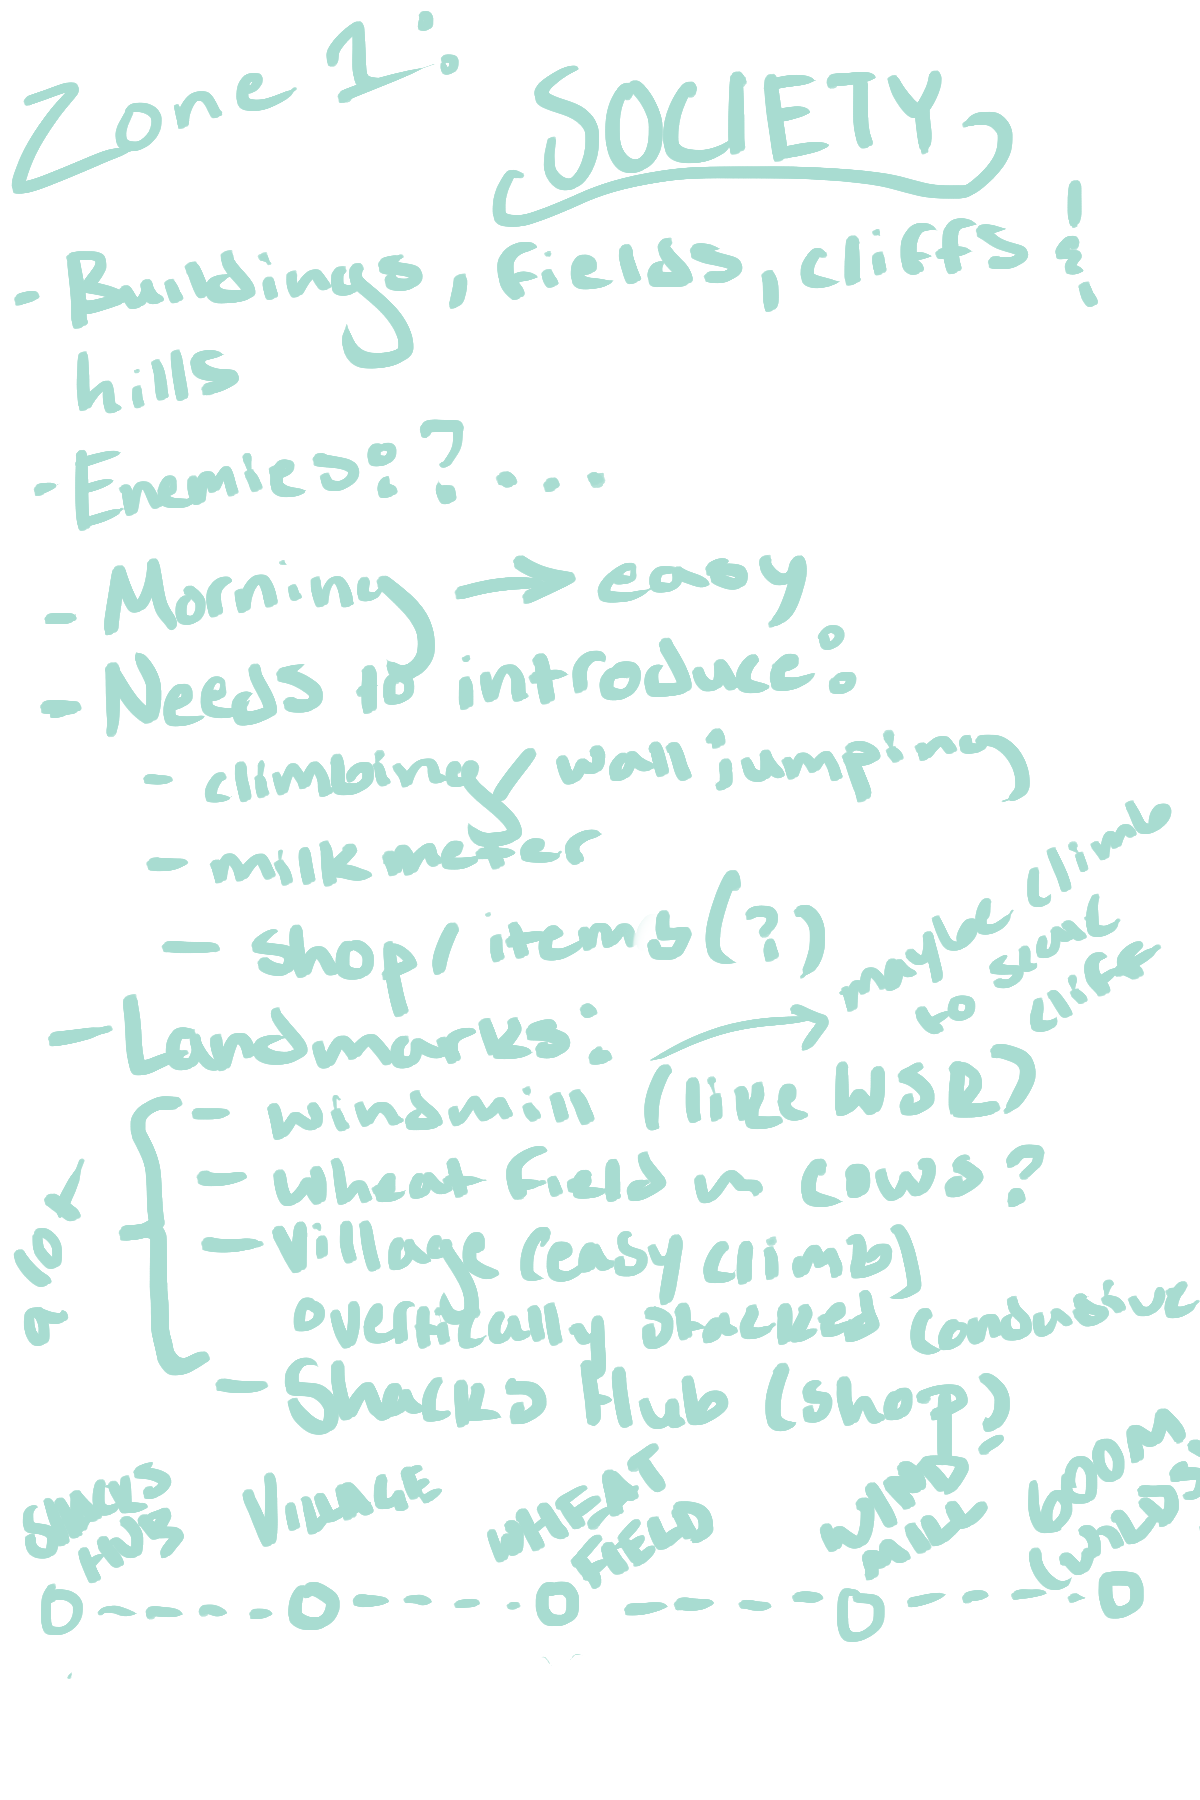 Zone 1:
SOCIETY
- Buildings, fields, cliffs &
hills
- Enemies: ?...
- Morning → easy
- Needs to introduce:
- climbing/wall jumping
- milk meter
- shop/items(?)
- Landmarks:
→ maybe climb
to scout
cliff
- windmill (like WSR)
- wheat field w cows?
- Village (easy climb)
vertically stacked condusive
- Shacks Hub (shop)
SHACKS
HUB
VILLAGE
WHEAT
FIELD
WIND-
MILL
BOOM
(WILDS